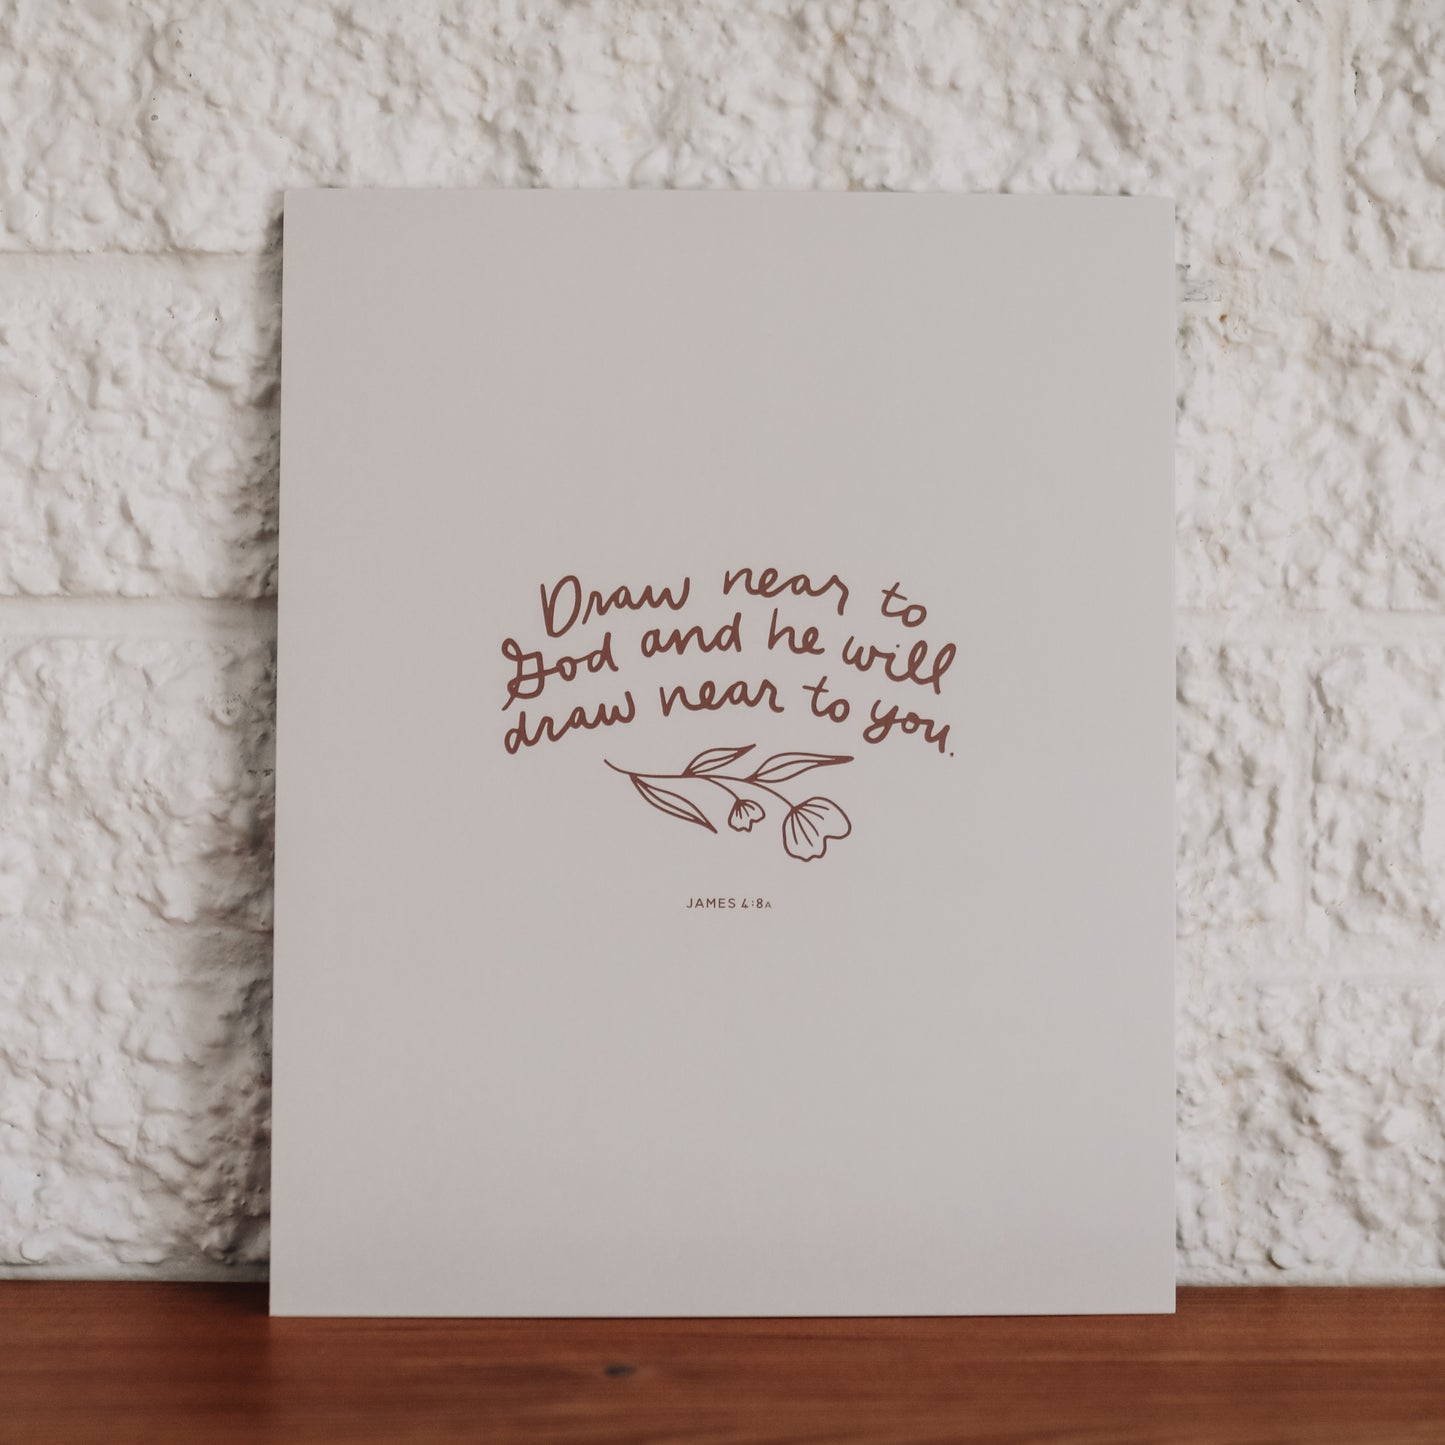 Draw near to
God and he will
draw near to you.
JAMES 4:8A